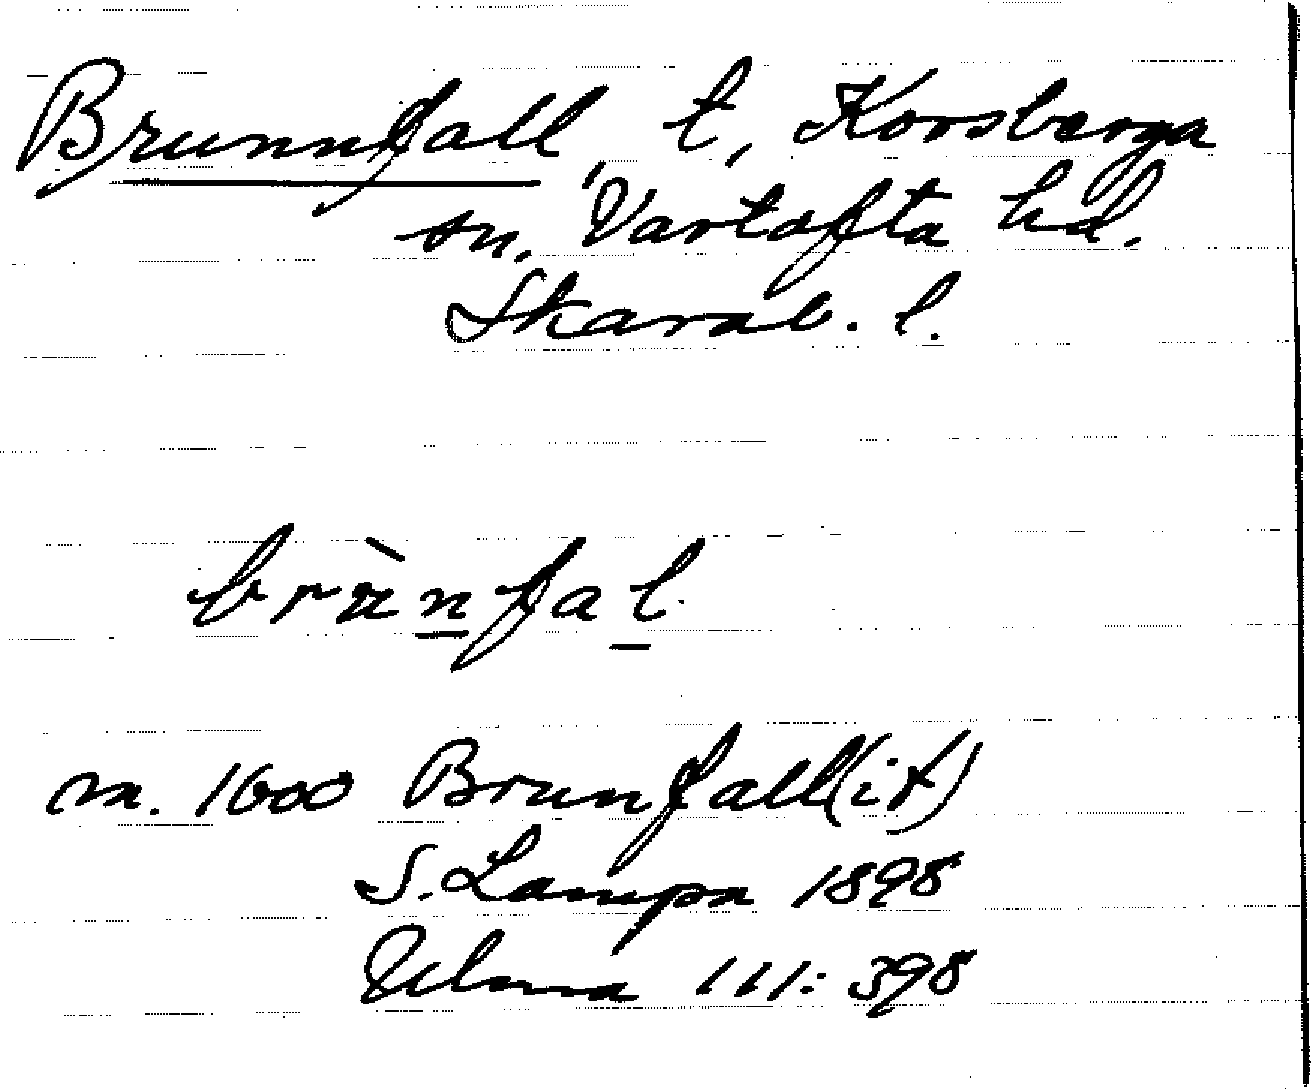 Brunnfall, t, Korsberga
sn, Vartofta hd.
Skarab. l.
brùnfal
m. 1600 Brunfall(it)
S. Lampa 1898
Ulma 111: 398